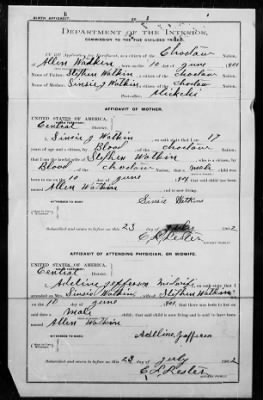 BIRTH AFFIDAVIT.
DEPARTMENT OF THE INTERIOR,
COMMISSION TO THE FIVE CIVILIZED TRIBES.
IN RE Application for Enrollment, as a citizen of the Choctaw Nation,
Allen Watkin, born on the 10 day of June, 1901
Name of Father: Stephen Watkin a citizen of the Choctaw Nation.
Name of Mother: Sinsie J Watkin a citizen of the Choctaw Nation.
Post-office
AFFIDAVIT OF MOTHER.
UNITED STATES OF AMERICA,
Central District.
Sinsie J Watkin, on oath state that I am 17
years of age and a citizen, by Blood of the Choctaw
that I am the lawful wife of Stephen Watkin
Blood of the Choctaw male
to me on 10 day of June, 1901, that said child
Allen Watkin, and is now living.
Sinsie Watkin
WITNESSES TO MARK:
Subscribed and sworn to before me this 23 day of July 1902
C L Lester
AFFIDAVIT OF ATTENDING PHYSICIAN, OR MIDWIFE.
UNITED STATES OF AMERICA,
Central District.
Adeline Jefferson midwife, on oath state that I
attended on Mrs. Sinsie Watkin, wife of Stephen Watkin
10 day of June, 1901, that there was born to her on said
male child; that said child is now living and is said to have
Allen Watkin
Adeline Jefferson
WITNESSES TO MARK:
Subscribed and sworn to before me this 23 day of July 1902
C L Lester